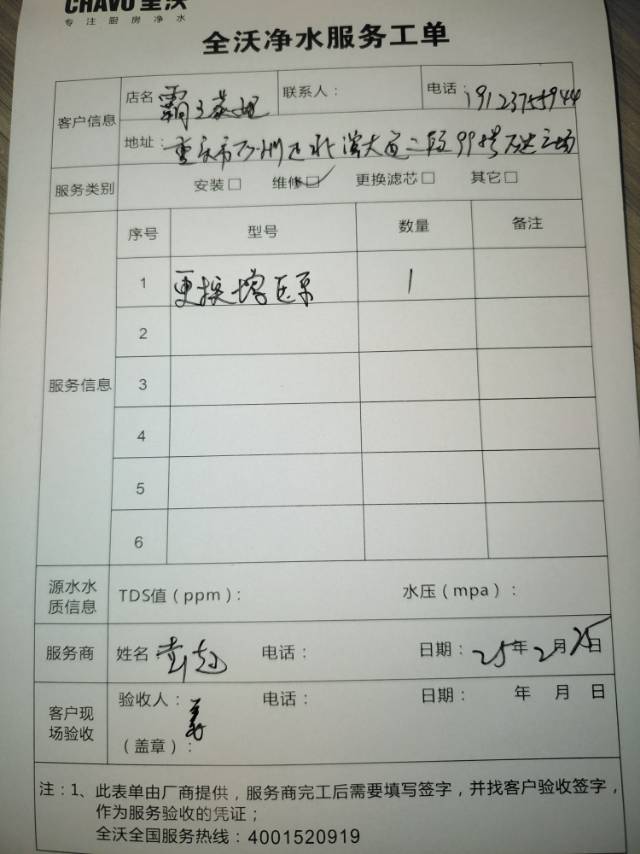 CHAVO全沃
专注厨房净水
全沃净水服务工单
客户信息
店名 霸王茶姬 联系人： 电话：19123755944
地址：重庆市万州区北滨大道二段99号万达广场
服务类别 安装□ 维修☑ 更换滤芯□ 其它□
服务信息
序号 型号 数量 备注
1 更换增压泵 1
2
3
4
5
6
源水水质信息 TDS值（ppm）： 水压（mpa）：
服务商 姓名 电话： 日期：25年2月25日
客户现场验收
验收人： 电话： 日期： 年 月 日
（盖章）：
注：1、此表单由厂商提供，服务商完工后需要填写签字，并找客户验收签字，
作为服务验收的凭证；
全沃全国服务热线：4001520919